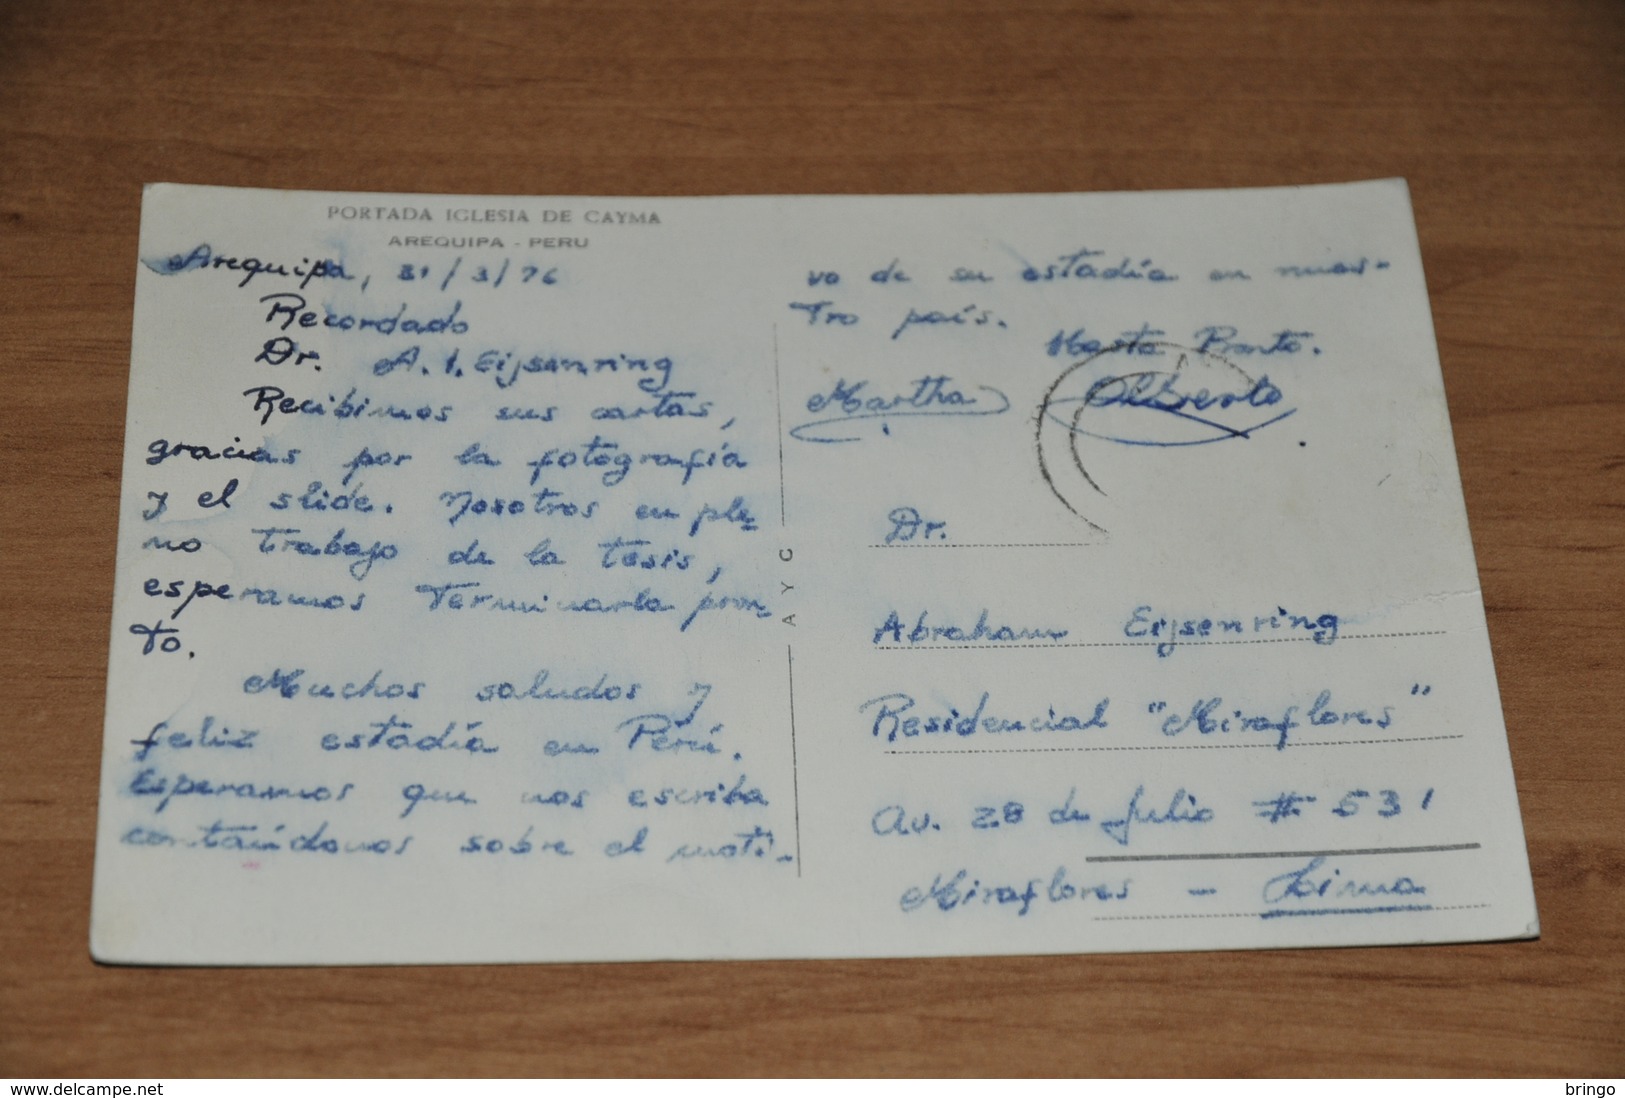 PORTADA IGLESIA DE CAYMA
AREQUIPA - PERU
Arequipa, 31/3/76
Recordado
Dr. A. I. Eijsenring
Recibimos sus cartas,
gracias por la fotografía
y el slide. Nosotros en ple-
no trabajo de la tesis,
esperamos terminarla pron-
to.
Muchos saludos y
feliz estadía en Perú.
Esperamos que nos escriba
contaíndonos sobre el moti-
vo de su estadía en nues-
tro país.
Hasta Pronto.
Martha Alberto
A Y C
Dr.
Abraham Eijsenring
Residencial "Miraflores"
Av. 28 de Julio # 531
Miraflores - Lima
www.delcampe.net
bringo